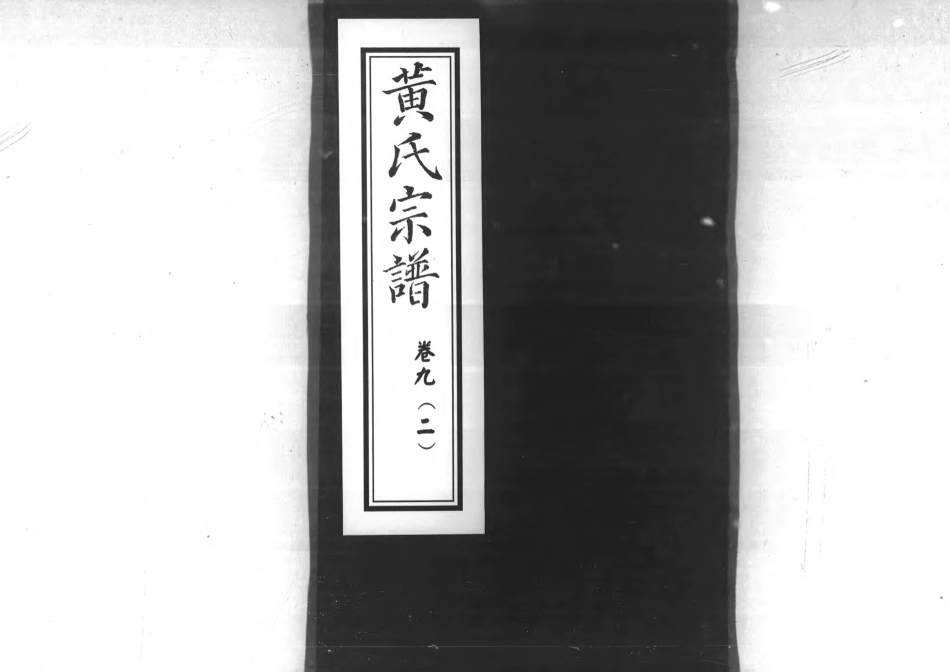 黃氏宗譜
卷九（二）